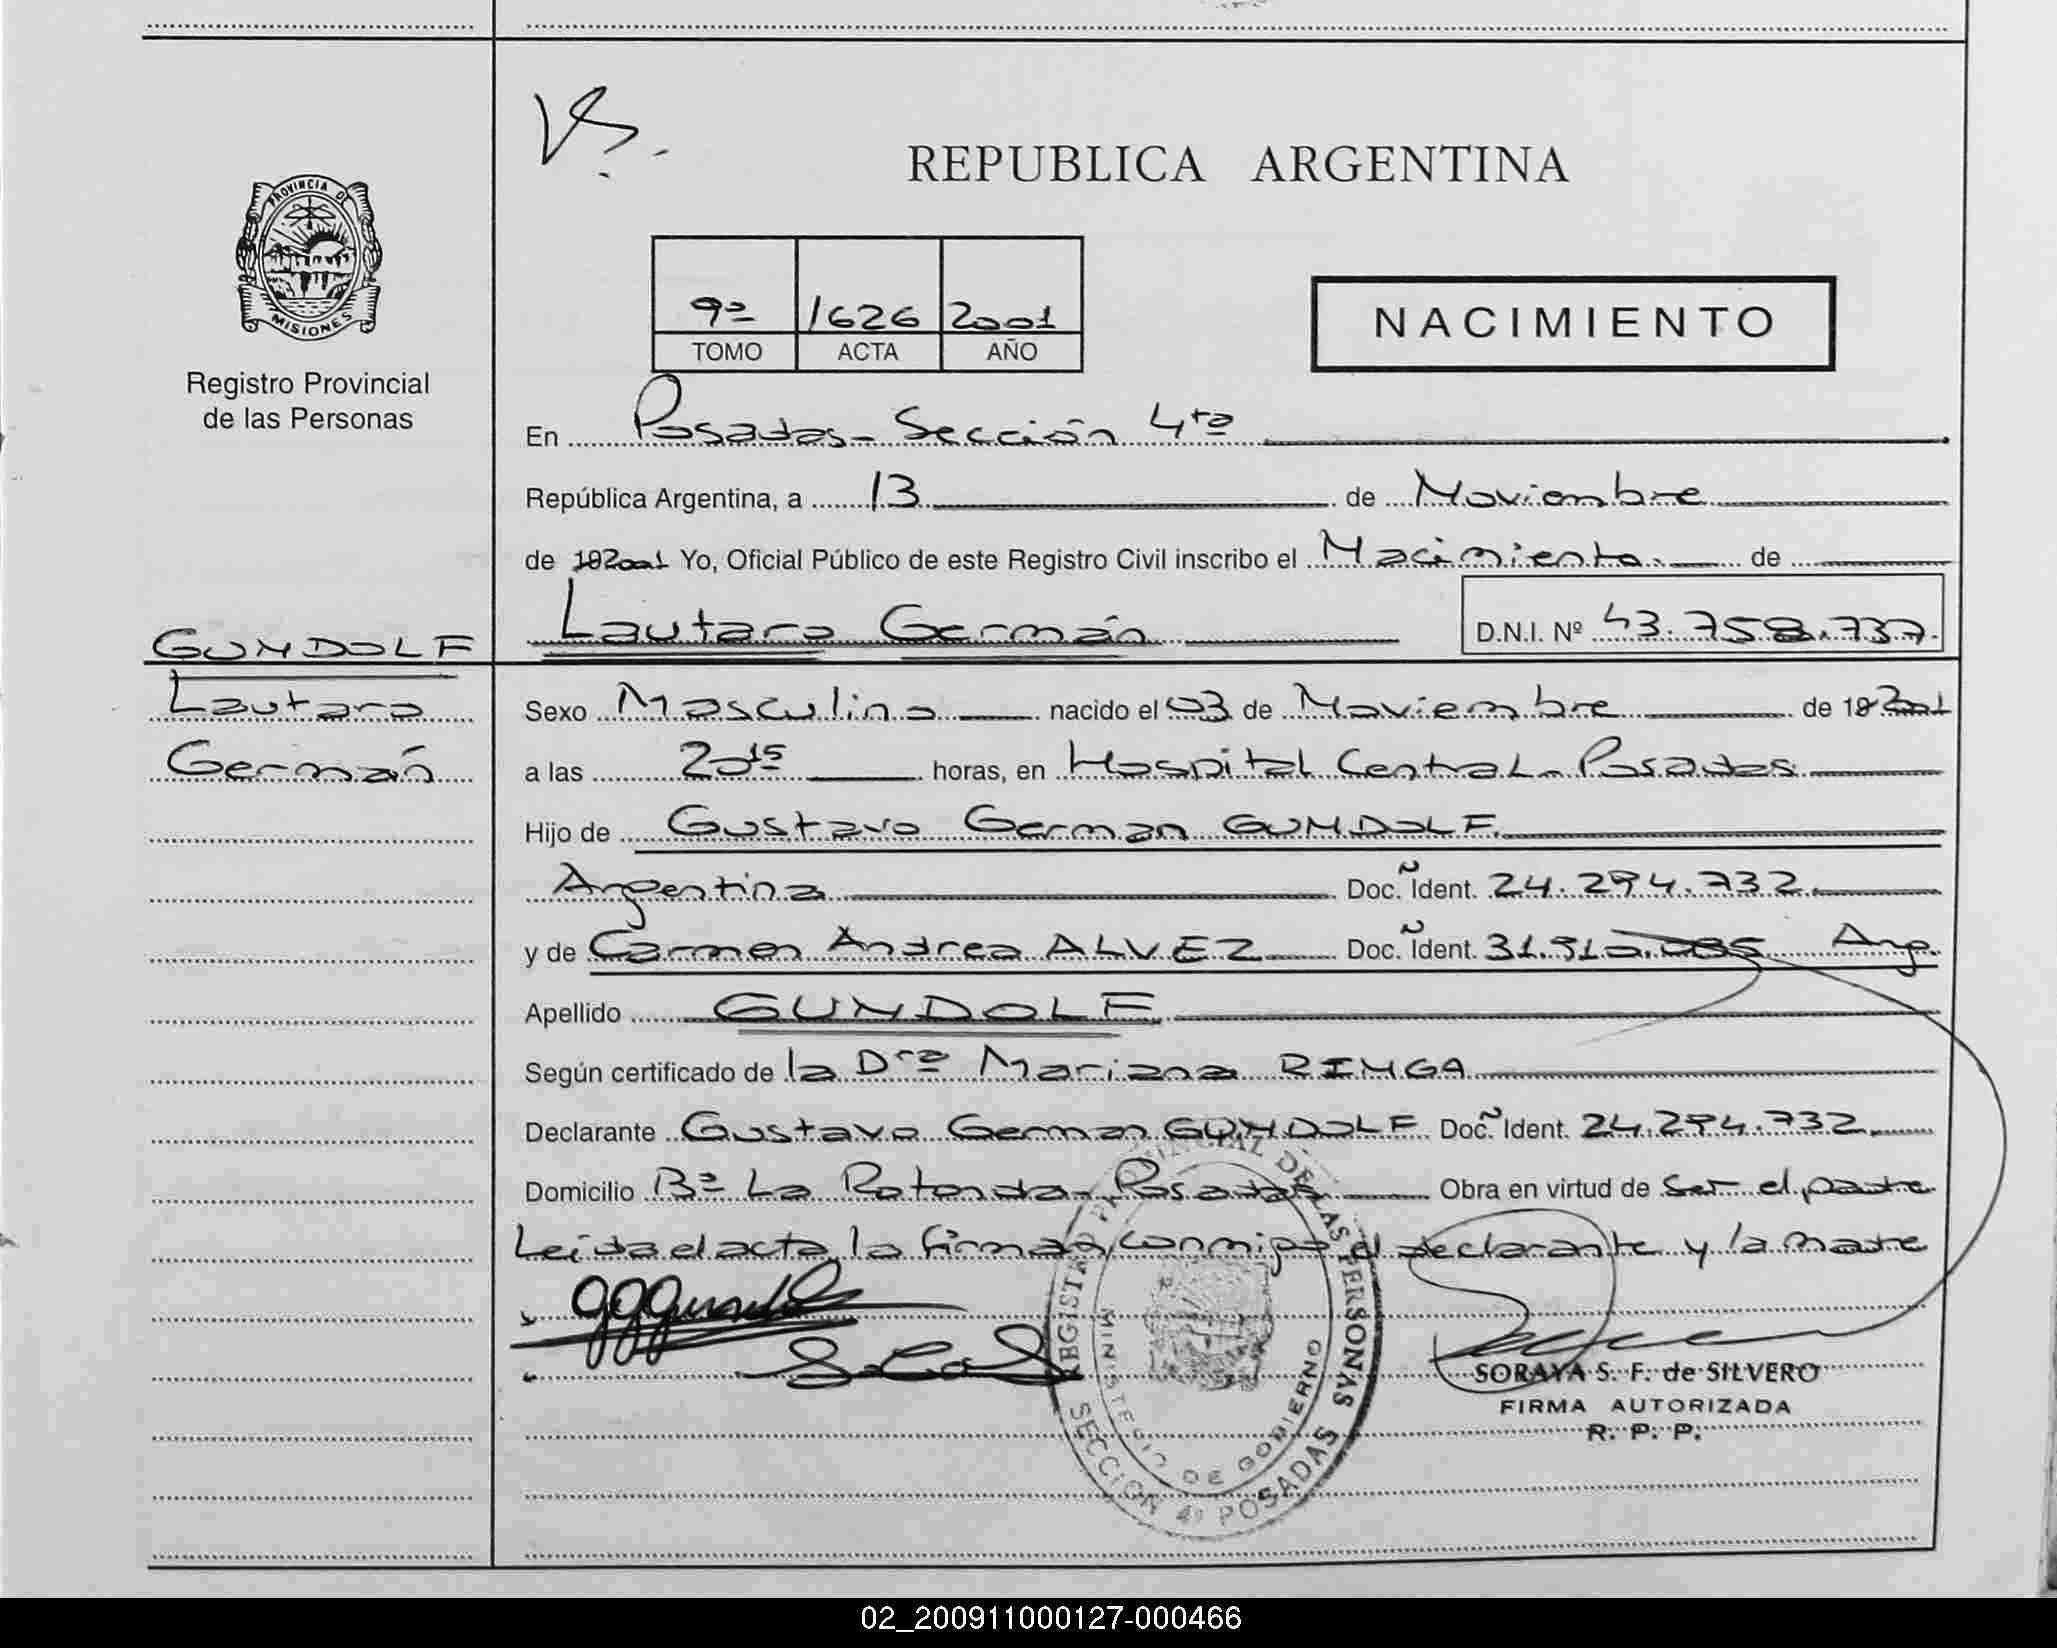 REPUBLICA ARGENTINA
PROVINCIA DE
MISIONES
Registro Provincial
de las Personas
9º 1626 2001
TOMO ACTA AÑO
NACIMIENTO
En Posadas - Sección 4ta
República Argentina, a 13 de Noviembre
de 2001 Yo, Oficial Público de este Registro Civil inscribo el Nacimiento de
Lautaro Germán D.N.I. Nº 43.758.737.
GUNDOLF
Lautaro
Germán
Sexo Masculino nacido el 03 de Noviembre de 2001
a las 20 15 horas, en Hospital Central - Posadas
Hijo de Gustavo German GUNDOLF
Argentina Doc. Ident. 24.294.732
y de Carmen Andrea ALVEZ Doc. Ident. Arg.
Apellido GUNDOLF
Según certificado de la Dra Mariana RINGA
Declarante Gustavo German GUNDOLF Doc. Ident. 24.294.732
Domicilio Bº La Rotonda - Posadas Obra en virtud de Ser el padre
Leida el acta, la firman conmigo el declarante y la madre
REGISTRO PROVINCIAL DE LAS PERSONAS
MINISTERIO DE GOBIERNO
SECCION 4º POSADAS
SORAYA S. F. de SILVERO
FIRMA AUTORIZADA
R. P. P.
02_200911000127-000466